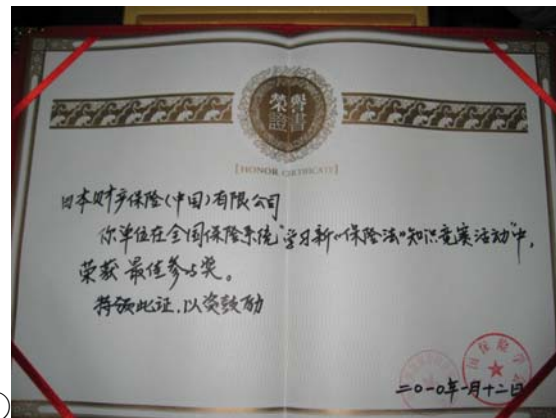 榮譽
證書
[HONOR CERTIFICATE]
日本财产保险(中国)有限公司
你单位在全国保险系统“学习新《保险法》知识竞赛活动”中,
荣获 最佳参与奖。
特颁此证,以资鼓励
国保险学
二〇一〇年一月十二日